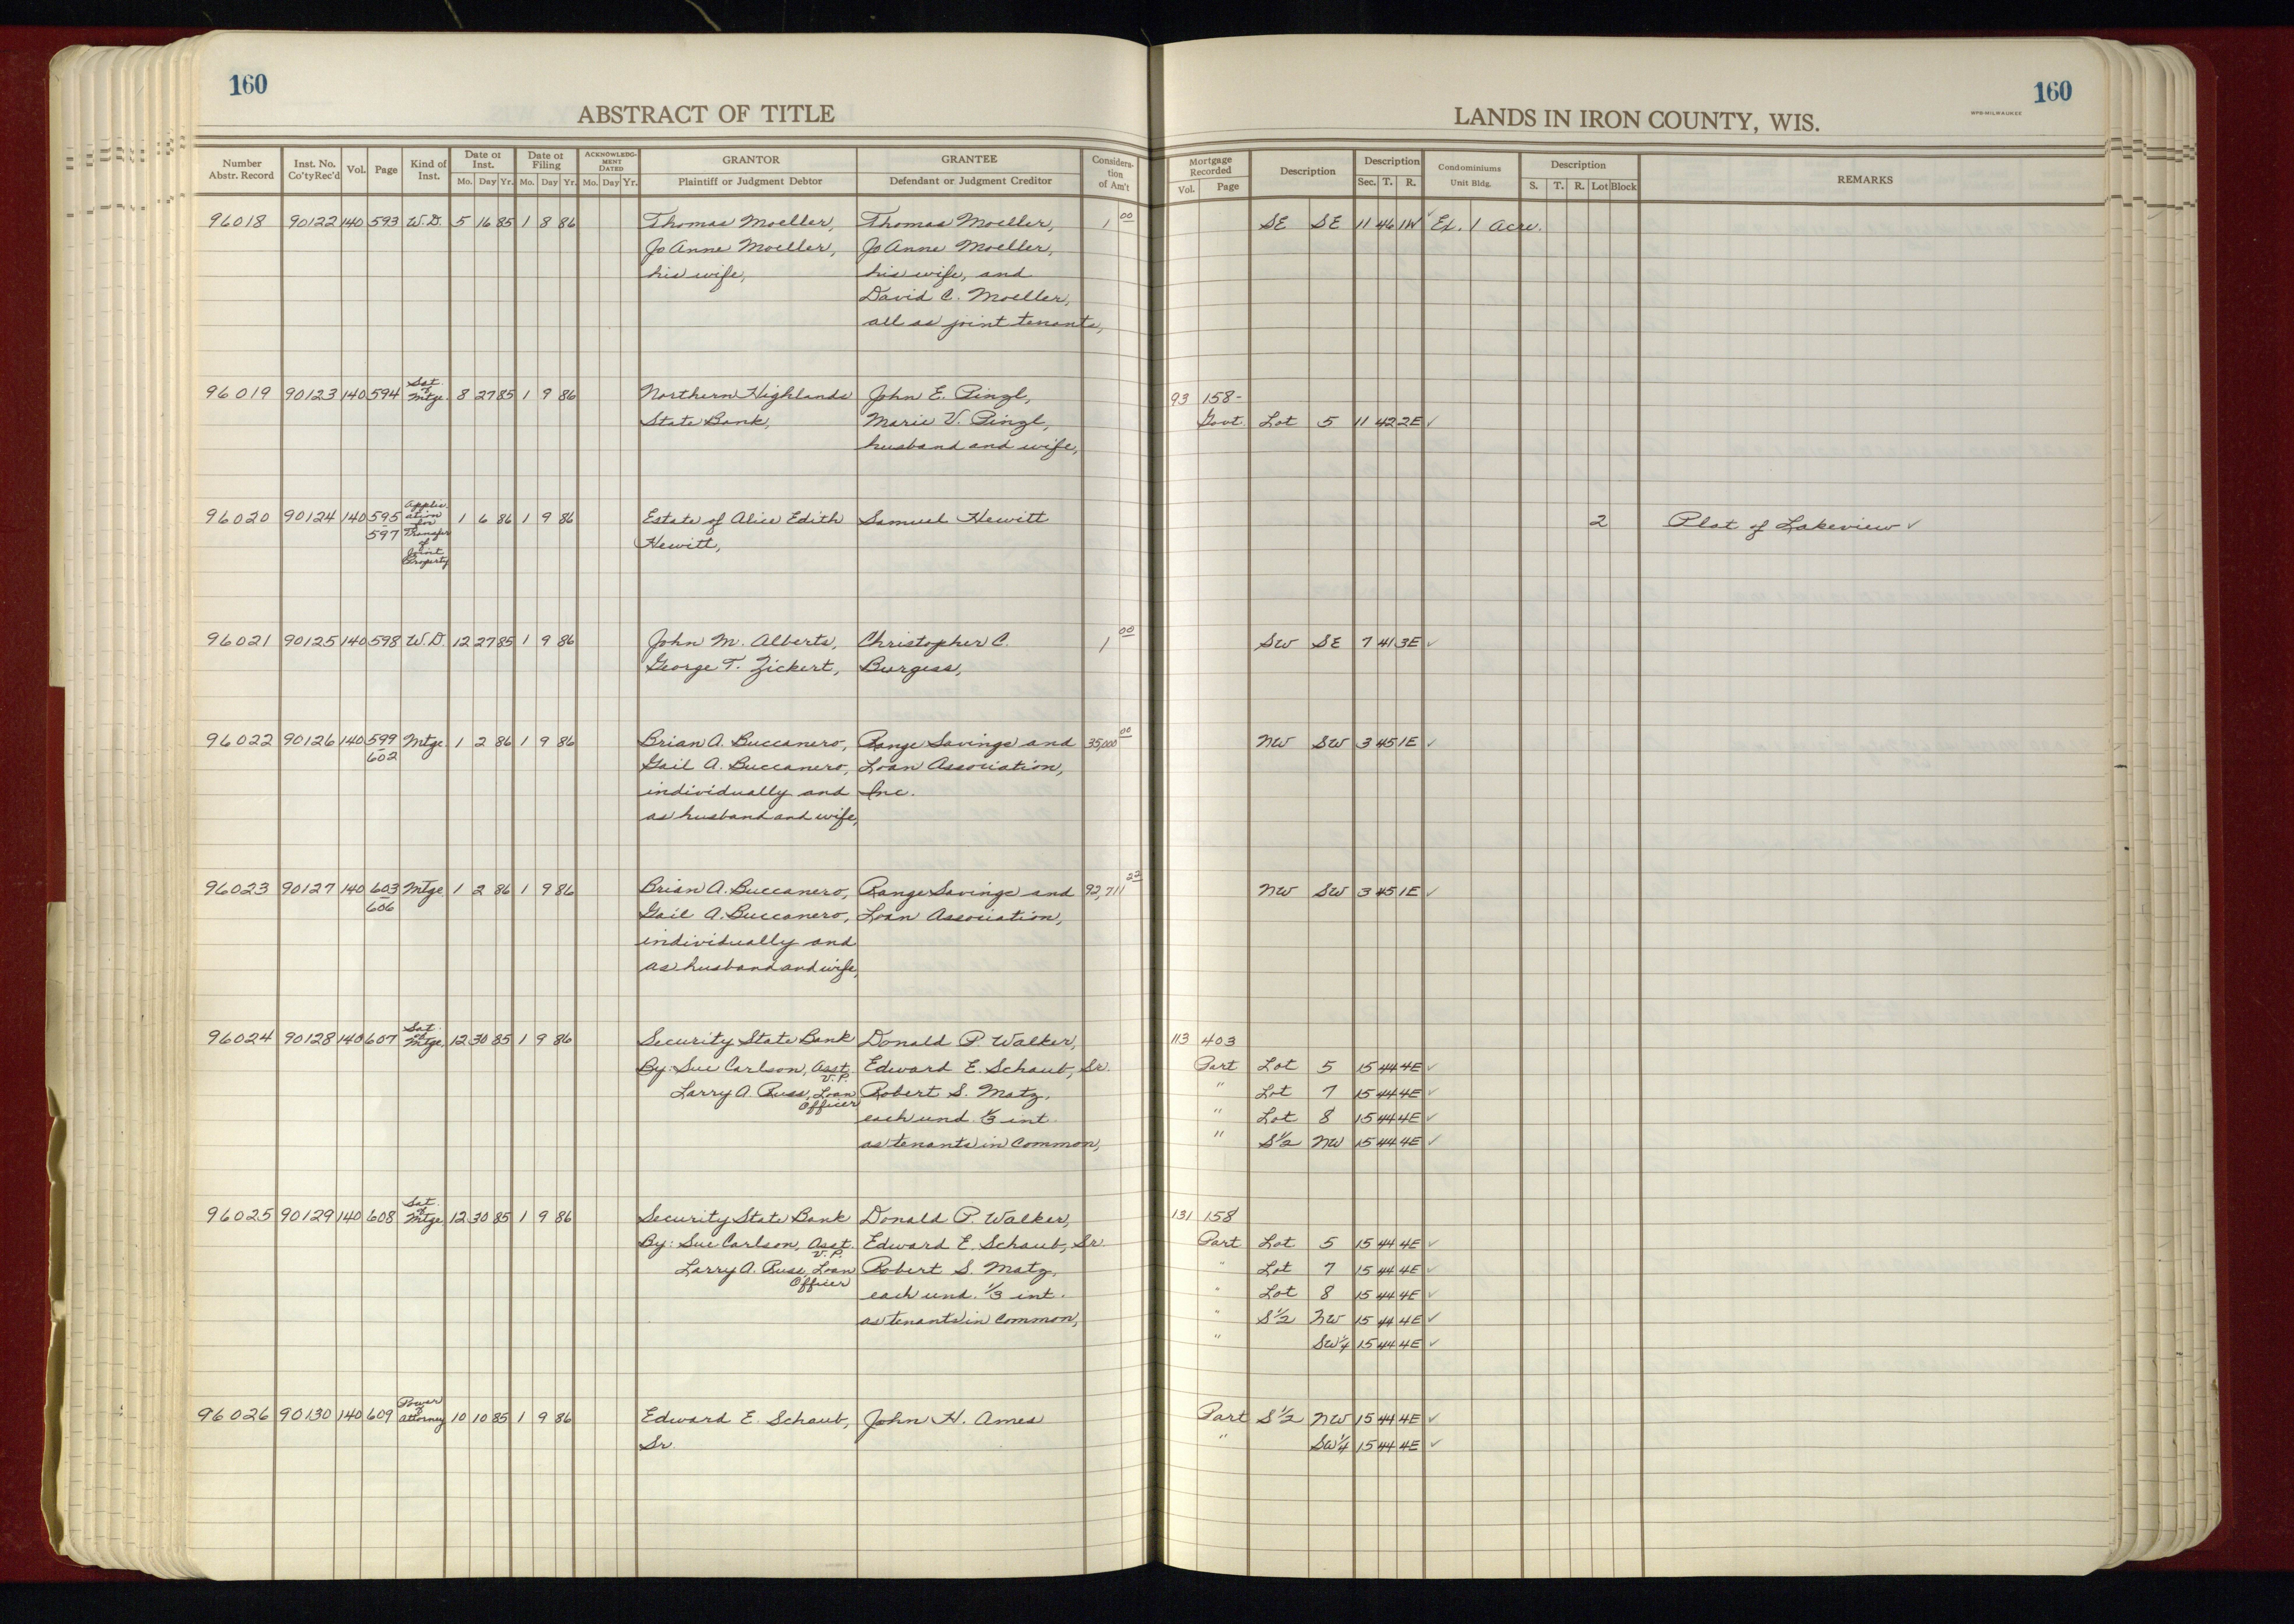 160
ABSTRACT OF TITLE
Number Abstr. Record | Inst. No. Co'ty Rec'd | Vol. | Page | Kind of Inst. | Date of Inst. Mo. Day Yr. | Date of Filing Mo. Day Yr. | ACKNOWLEDGMENT DATED Mo. Day Yr. | GRANTOR Plaintiff or Judgment Debtor | GRANTEE Defendant or Judgment Creditor | Consideration of Am't
160
LANDS IN IRON COUNTY, WIS.
Mortgage Recorded Vol. Page | Description | Description Sec. T. R. | Condominiums Unit Bldg. | Description S. T. R. Lot Block | REMARKS
96018 90122 140 593 W.D. 5 16 85 1 8 86 Thomas Moeller, Thomas Moeller, 1 00 SE SE 11 46 1W ✓ Ex. 1 Acre.
JoAnne Moeller, JoAnne Moeller,
his wife, his wife, and
David C. Moeller,
all as joint tenants,
96019 90123 140 594 Sat. of Mtge. 8 27 85 1 9 86 Northern Highlands John E. Pinzl, 93 158-
State Bank, Marie V. Pinzl, Govt. Lot 5 11 42 2E ✓
husband and wife,
96020 90124 140 595-597 Application for Transfer of Joint Property 1 6 86 1 9 86 Estate of Alice Edith Samuel Hewitt 2 Plat of Lakeview ✓
Hewitt,
96021 90125 140 598 W.D. 12 27 85 1 9 86 John M. Alberts, Christopher C. 1 00 SW SE 7 41 3E ✓
George T. Zickert, Burgess,
96022 90126 140 599-602 Mtge. 1 2 86 1 9 86 Brian A. Buccanero, Range Savings and 35,000 00 NW SW 3 45 1E ✓
Gail A. Buccanero, Loan Association,
individually and Inc.
as husband and wife,
96023 90127 140 603-606 Mtge. 1 2 86 1 9 86 Brian A. Buccanero, Range Savings and 92,711 23 NW SW 3 45 1E ✓
Gail A. Buccanero, Loan Association,
individually and
as husband and wife,
96024 90128 140 607 Sat. of Mtge. 12 30 85 1 9 86 Security State Bank Donald P. Walker, 113 403
By: Sue Carlson, Asst. V.P. Edward E. Schaub, Sr. Part Lot 5 15 44 4E ✓
Larry A. Russ, Loan Officer Robert S. Matz, " Lot 7 15 44 4E ✓
each und. 1/3 int. " Lot 8 15 44 4E ✓
as tenants in common, " S½ NW 15 44 4E ✓
96025 90129 140 608 Sat. of Mtge. 12 30 85 1 9 86 Security State Bank Donald P. Walker, 131 158
By: Sue Carlson, Asst. V.P. Edward E. Schaub, Sr. Part Lot 5 15 44 4E ✓
Larry A. Russ, Loan Officer Robert S. Matz, " Lot 7 15 44 4E ✓
each und. 1/3 int. " Lot 8 15 44 4E ✓
as tenants in common, " S½ NW 15 44 4E ✓
" SW¼ 15 44 4E ✓
96026 90130 140 609 Power of Attorney 10 10 85 1 9 86 Edward E. Schaub, John H. Ames Part S½ NW 15 44 4E ✓
Sr. " SW¼ 15 44 4E ✓